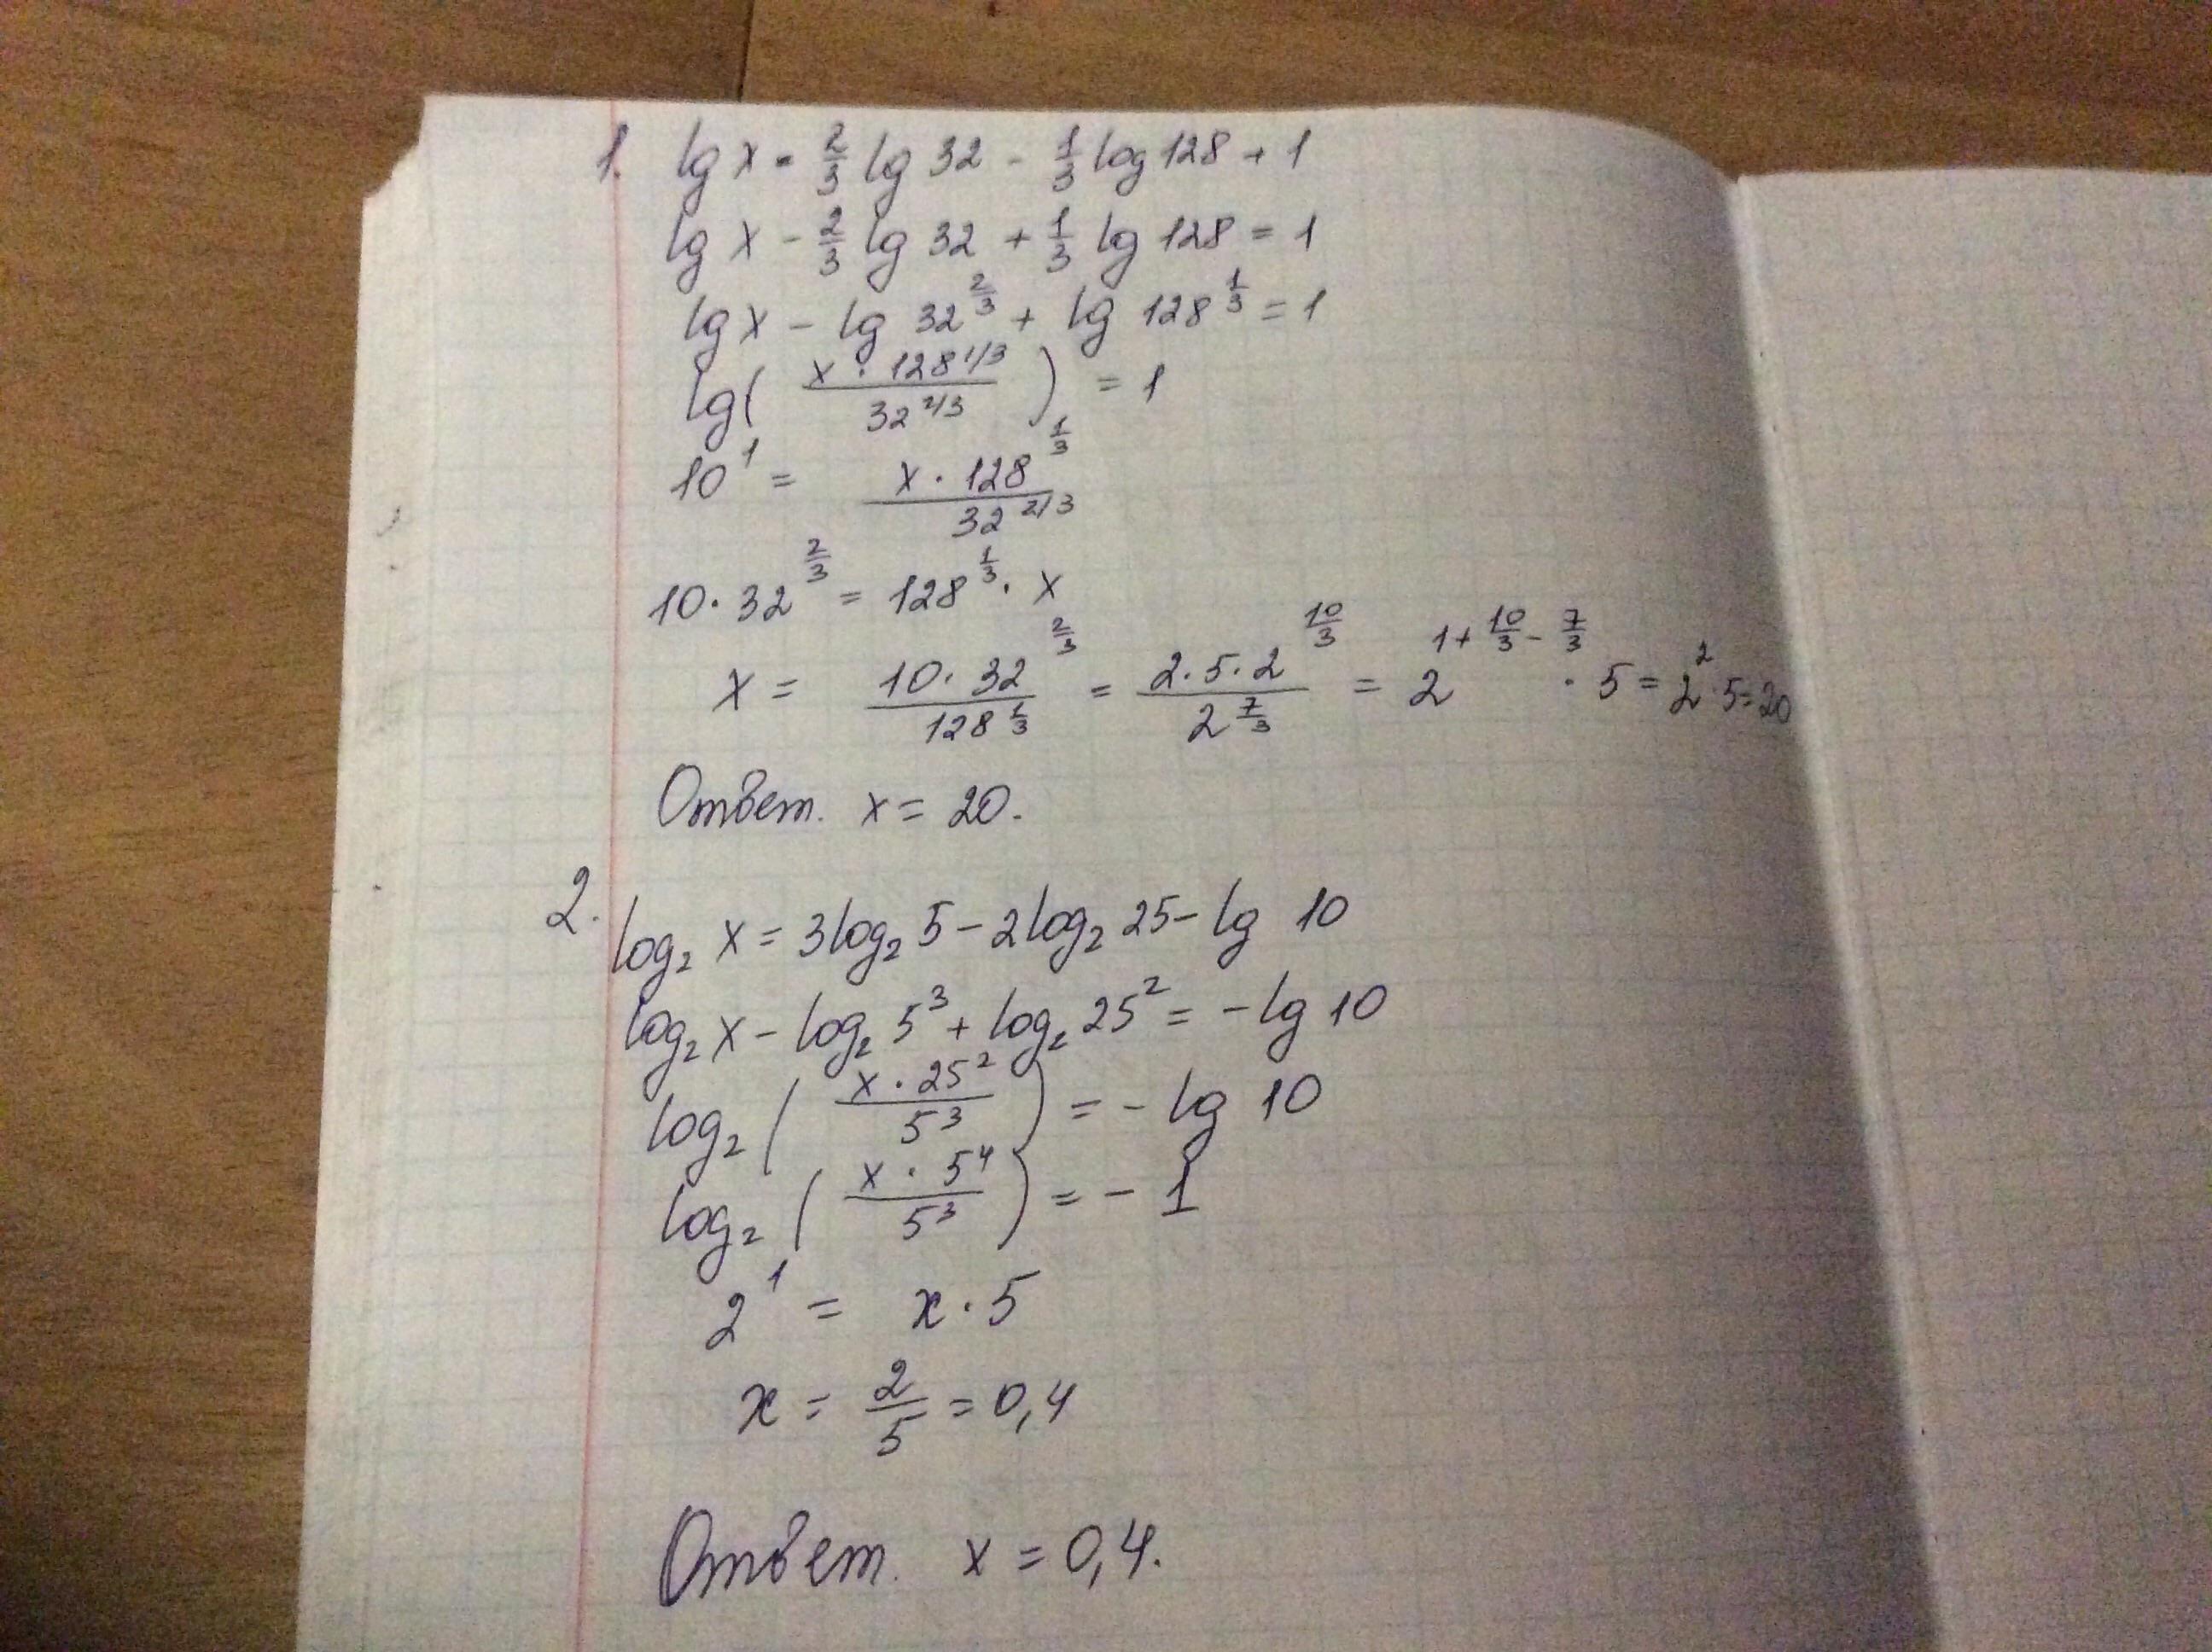 1. lg x = 2/3 lg 32 - 1/3 log 128 + 1
lg x - 2/3 lg 32 + 1/3 lg 128 = 1
lg x - lg 32^(2/3) + lg 128^(1/3) = 1
lg( (x · 128^(1/3)) / (32^(2/3)) ) = 1
10^1 = (x · 128^(1/3)) / (32^(2/3))
10 · 32^(2/3) = 128^(1/3) · x
x = (10 · 32^(2/3)) / (128^(1/3)) = (2 · 5 · 2^(10/3)) / (2^(7/3)) = 2^(1 + 10/3 - 7/3) · 5 = 2^2 · 5 = 20
Ответ. x = 20.
2. log₂ x = 3log₂ 5 - 2log₂ 25 - lg 10
log₂ x - log₂ 5^3 + log₂ 25^2 = - lg 10
log₂ ( (x · 25^2) / (5^3) ) = - lg 10
log₂ ( (x · 5^4) / (5^3) ) = - 1
2^1 = x · 5
x = 2/5 = 0,4
Ответ. x = 0,4.